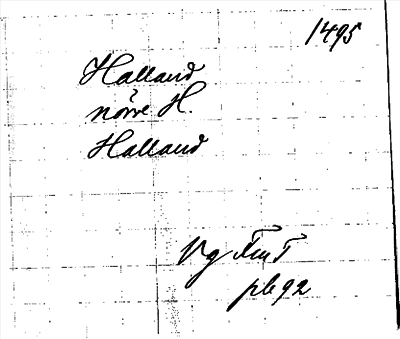 1495
Halland
norre H.
Halland
Vg FmT
pl 92